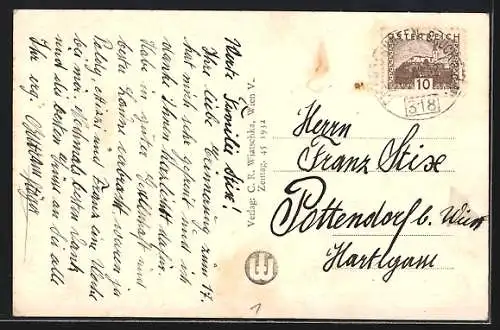 Werte Familie Stix!
Ihre liebe Erinnerung zum 17.
hat mich sehr gefreut und ich
danke Ihnen herzlichst dafür.
Habe in guter Gesellschaft und
beste Laune verbracht, waren ja
Poldy, Mizzi und Franz eine Woche
bei mir. Nochmals besten Dank
und die besten Grüsse an Sie alle
Ihr erg.
Verlag: C. R. Wiatschka, Wien V.
Zentag. 45 1934
ÖSTERREICH
10
318
Herrn
Franz Stix
Pottendorf b. Wien
Hartlgasse
1